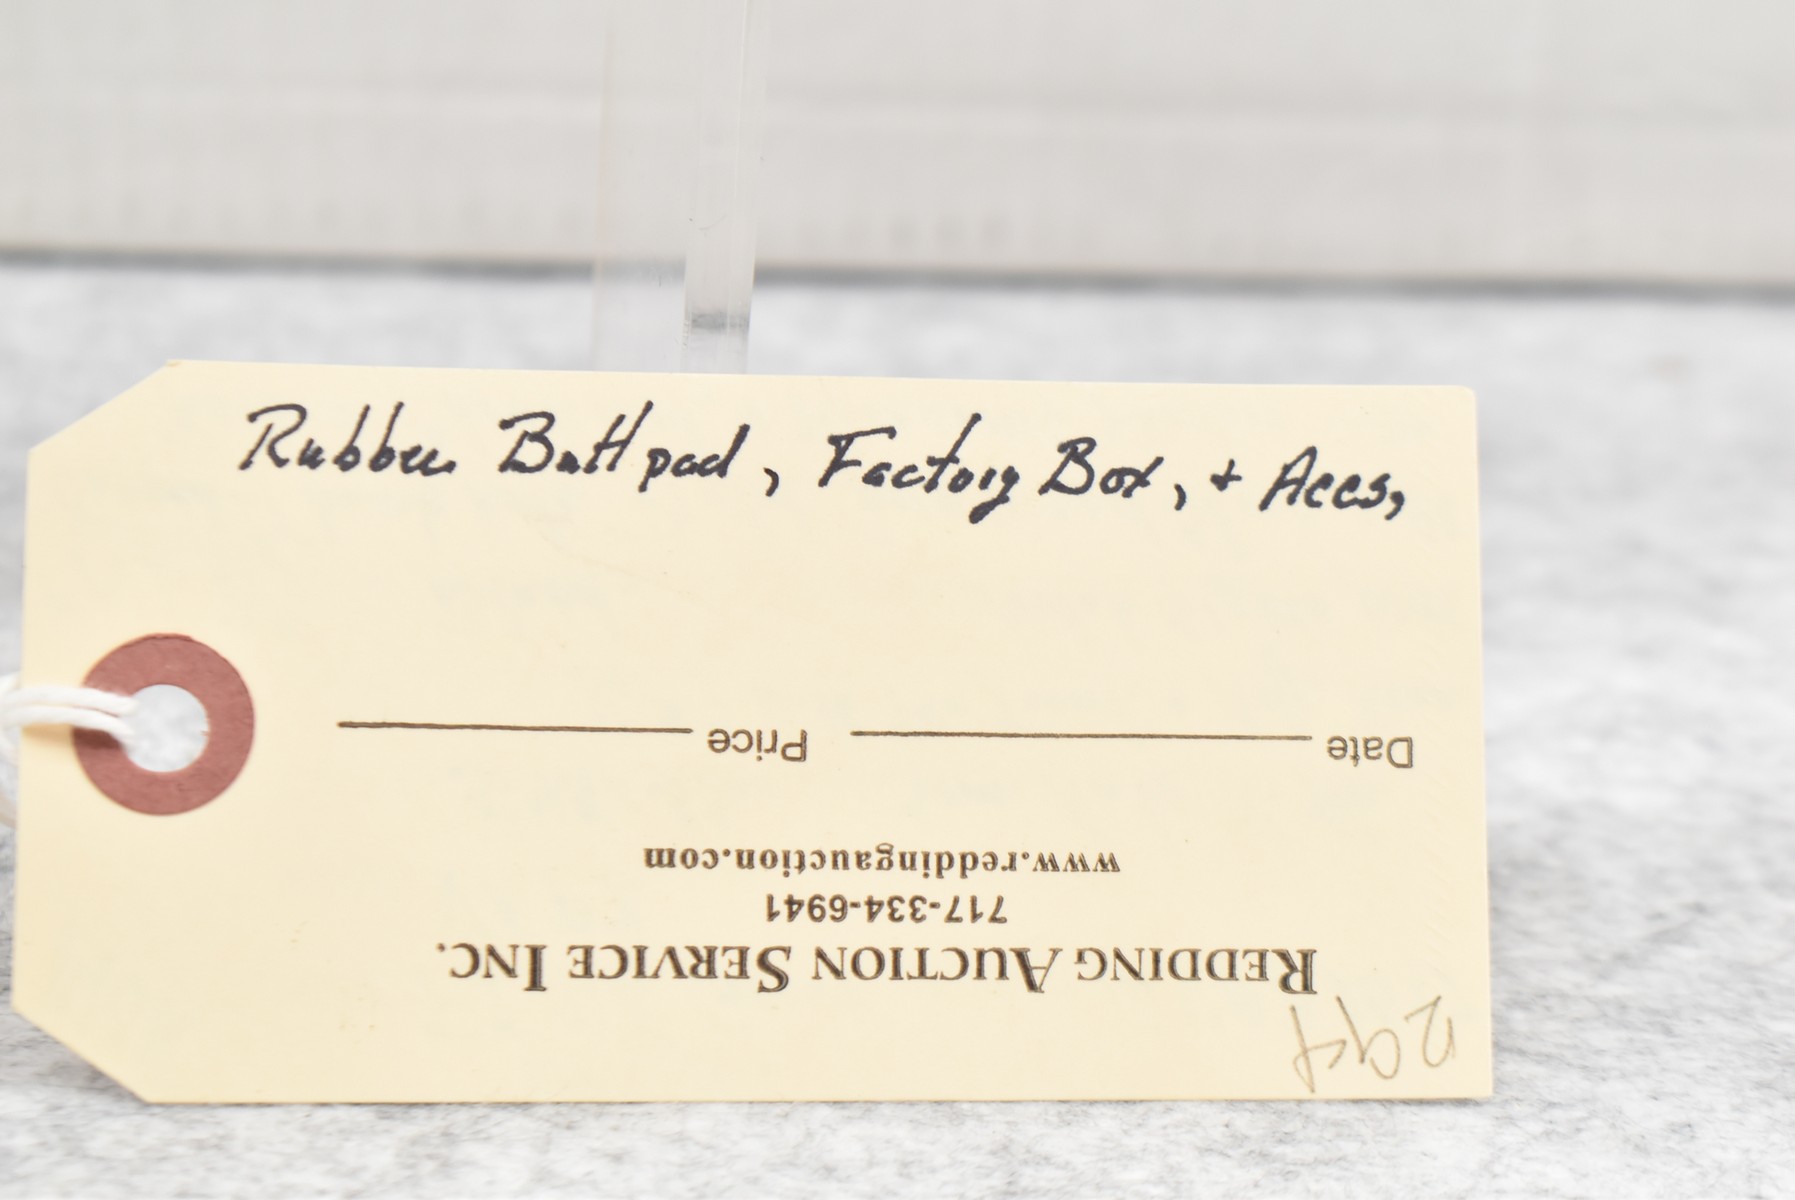 Rubber Butt pad, Factory Box, + Aces,
294
REDDING AUCTION SERVICE INC.
717-334-6941
www.reddingauction.com
Date Price